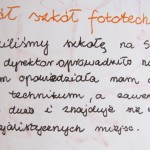 ół szkół fototech
iliśmy szkołę na S
dyrektor oprowadziło na
m opowiedziała nam
technikum, a zawe
duża i znajduje się w
jalistycznych miejsc.